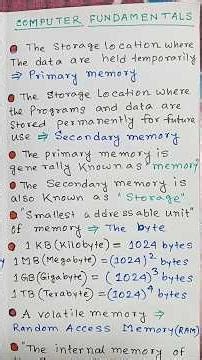 COMPUTER FUNDAMENTALS
The storage location where
The data are held temporarily
⇒ Primary memory
The storage location where
the Programs and data are
stored permanently for future
use ⇒ Secondary memory
The primary memory is
generally known as "memory
The Secondary memory is
also Known as "Storage"
"Smallest addressable unit"
of memory ⇒ The byte
1 KB (Kilobyte) = 1024 bytes
1 MB (Megabyte) = (1024)² bytes
1 GB (Gigabyte) = (1024)³ bytes
1 TB (Terabyte) = (1024)⁴ bytes
A volatile memory ⇒
Random Access Memory (RAM)
"The internal memory of